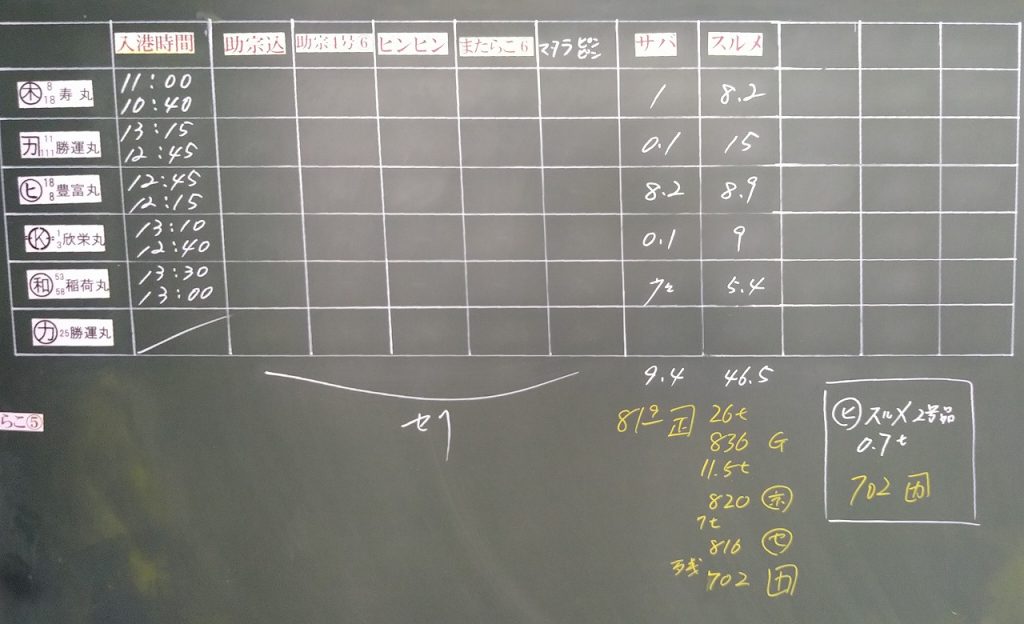 入港時間 助宗込 助宗1号6 ピンピン またらこ6 マダラピンピン サバ スルメ
木 8 18 寿丸 11:00 10:40 1 8.2
力 11 111 勝運丸 13:15 12:45 0.1 15
ヒ 18 8 豊富丸 12:45 12:15 8.2 8.9
K 1 3 欣栄丸 13:10 12:40 0.1 9
和 53 58 稲荷丸 13:30 13:00 5.4
力 25 勝運丸
9.4 46.5
らこ⑤
セリ
正 26t
830 G
11.5t
820
7t
816 セ
残 702 カ
ヒ スルメ 2号品
0.7t
702 カ